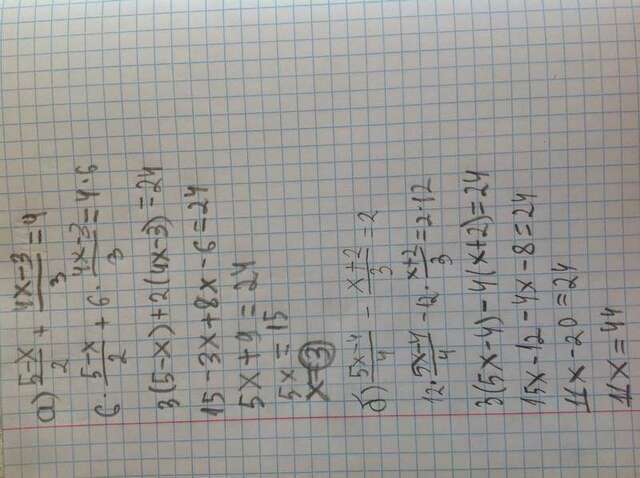 а) (5-x)/2 + (4x-3)/3 = 4
6·(5-x)/2 + 6·(4x-3)/3 = 4·6
3(5-x)+2(4x-3)=24
15-3x+8x-6=24
5x+9=24
5x=15
x=3
б) (5x-4)/4 - (x+2)/3 = 2
12·(5x-4)/4 - 12·(x+2)/3 = 2·12
3(5x-4)-4(x+2)=24
15x-12-4x-8=24
11x-20=24
11x=44